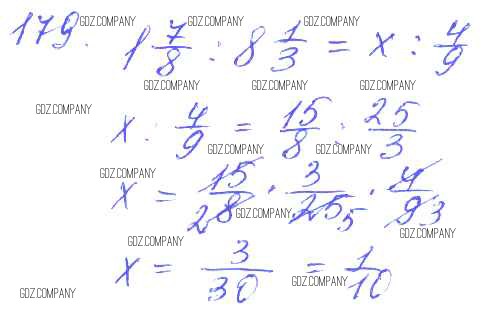 179. 1 7/8 : 8 1/3 = x : 4/9
x : 4/9 = 15/8 : 25/3
x = 15/2 8 · 3/25 5 · 4/9 3
x = 3/30 = 1/10
GDZ.COMPANY GDZ.COMPANY GDZ.COMPANY
GDZ.COMPANY GDZ.COMPANY GDZ.COMPANY
GDZ.COMPANY
GDZ.COMPANY GDZ.COMPANY
GDZ.COMPANY
GDZ.COMPANY
GDZ.COMPANY
GDZ.COMPANY
GDZ.COMPANY
GDZ.COMPANY